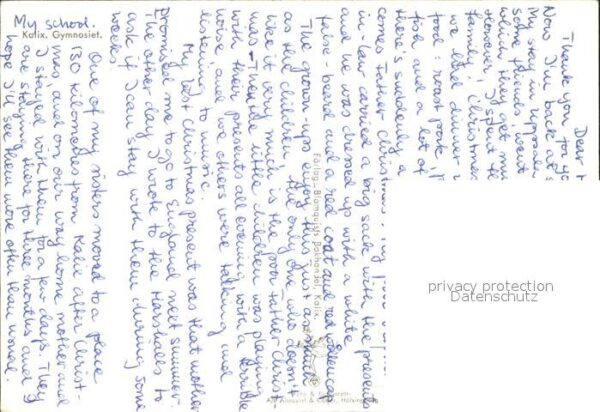 My school.
Kalix. Gymnosiet.
Dear
Thank you for yo
Now I'm back at s
My stay in Uppsala
some friends went
which they get
However, I spent the
family. Christmas
we had dinner
food: roast pork,
fish and a lot of
there's suddenly a
comes Father Christmas. My
in-law carried a big sack with the presents
and he was dressed up with a white
false-beard and a red coat and red
The grown-ups enjoy this just as much
as the children, the only one who doesn't
like it very much is the poor Father Christ-
mas. The little children was playing
with their presents all evening with a terrible
noise, and we others were talking and
listening to music.
My best Christmas present was that mother
promised me to go to England next summer.
The other day I wrote to the Marshalls to
ask if I can stay with them during some
weeks.
One of my sisters moved to a place
130 kilometres from Kalix after Christ-
mas, and on our way home mother and
I stayed with them for a few days. They
are staying there for three months and I
hope I'll see them more often than
Förlag: Blomquists Bokhandel, Kalix.
privacy protection
Datenschutz